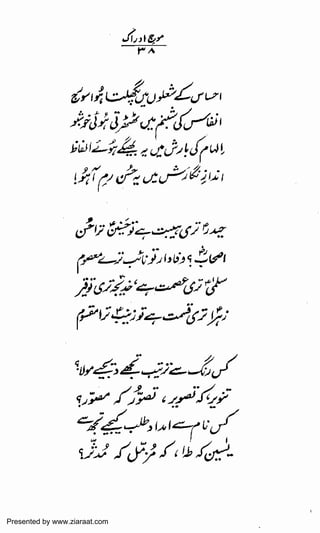 موجِ ادراک
۳۸
احساس کے شعلوں میں پگھلتا ہوا سورج
انفاس کی شبنم میں ٹھٹھرتی ہوئی خوشبو
الہام کی بارش میں یہ بھیگے ہوئے الفاظ
اندازِ نگارش میں یہ حسنِ رمِ آہو!
حیدرؑ تری ہیبت ہے تو حسنینؑ ترا حسن
اصحابؓ وفادار تو نائب ترے معصومؑ
سلمیٰؑ تری عصمت ہے، خدیجہؑ تری توقیر
زہراؑ تری قسمت ہے تو زینبؑ ترا مقسوم
کس رنگ سے ترتیب تجھے دیجیے مولا؟
تنویر، کہ تصویر، تصور، کہ مصور؟
کس نام سے امداد طلب کیجیے تجھ سے
یٰسین، کہ طہٰ، کہ مزمل، کہ مدثر؟
Presented by www.ziaraat.com